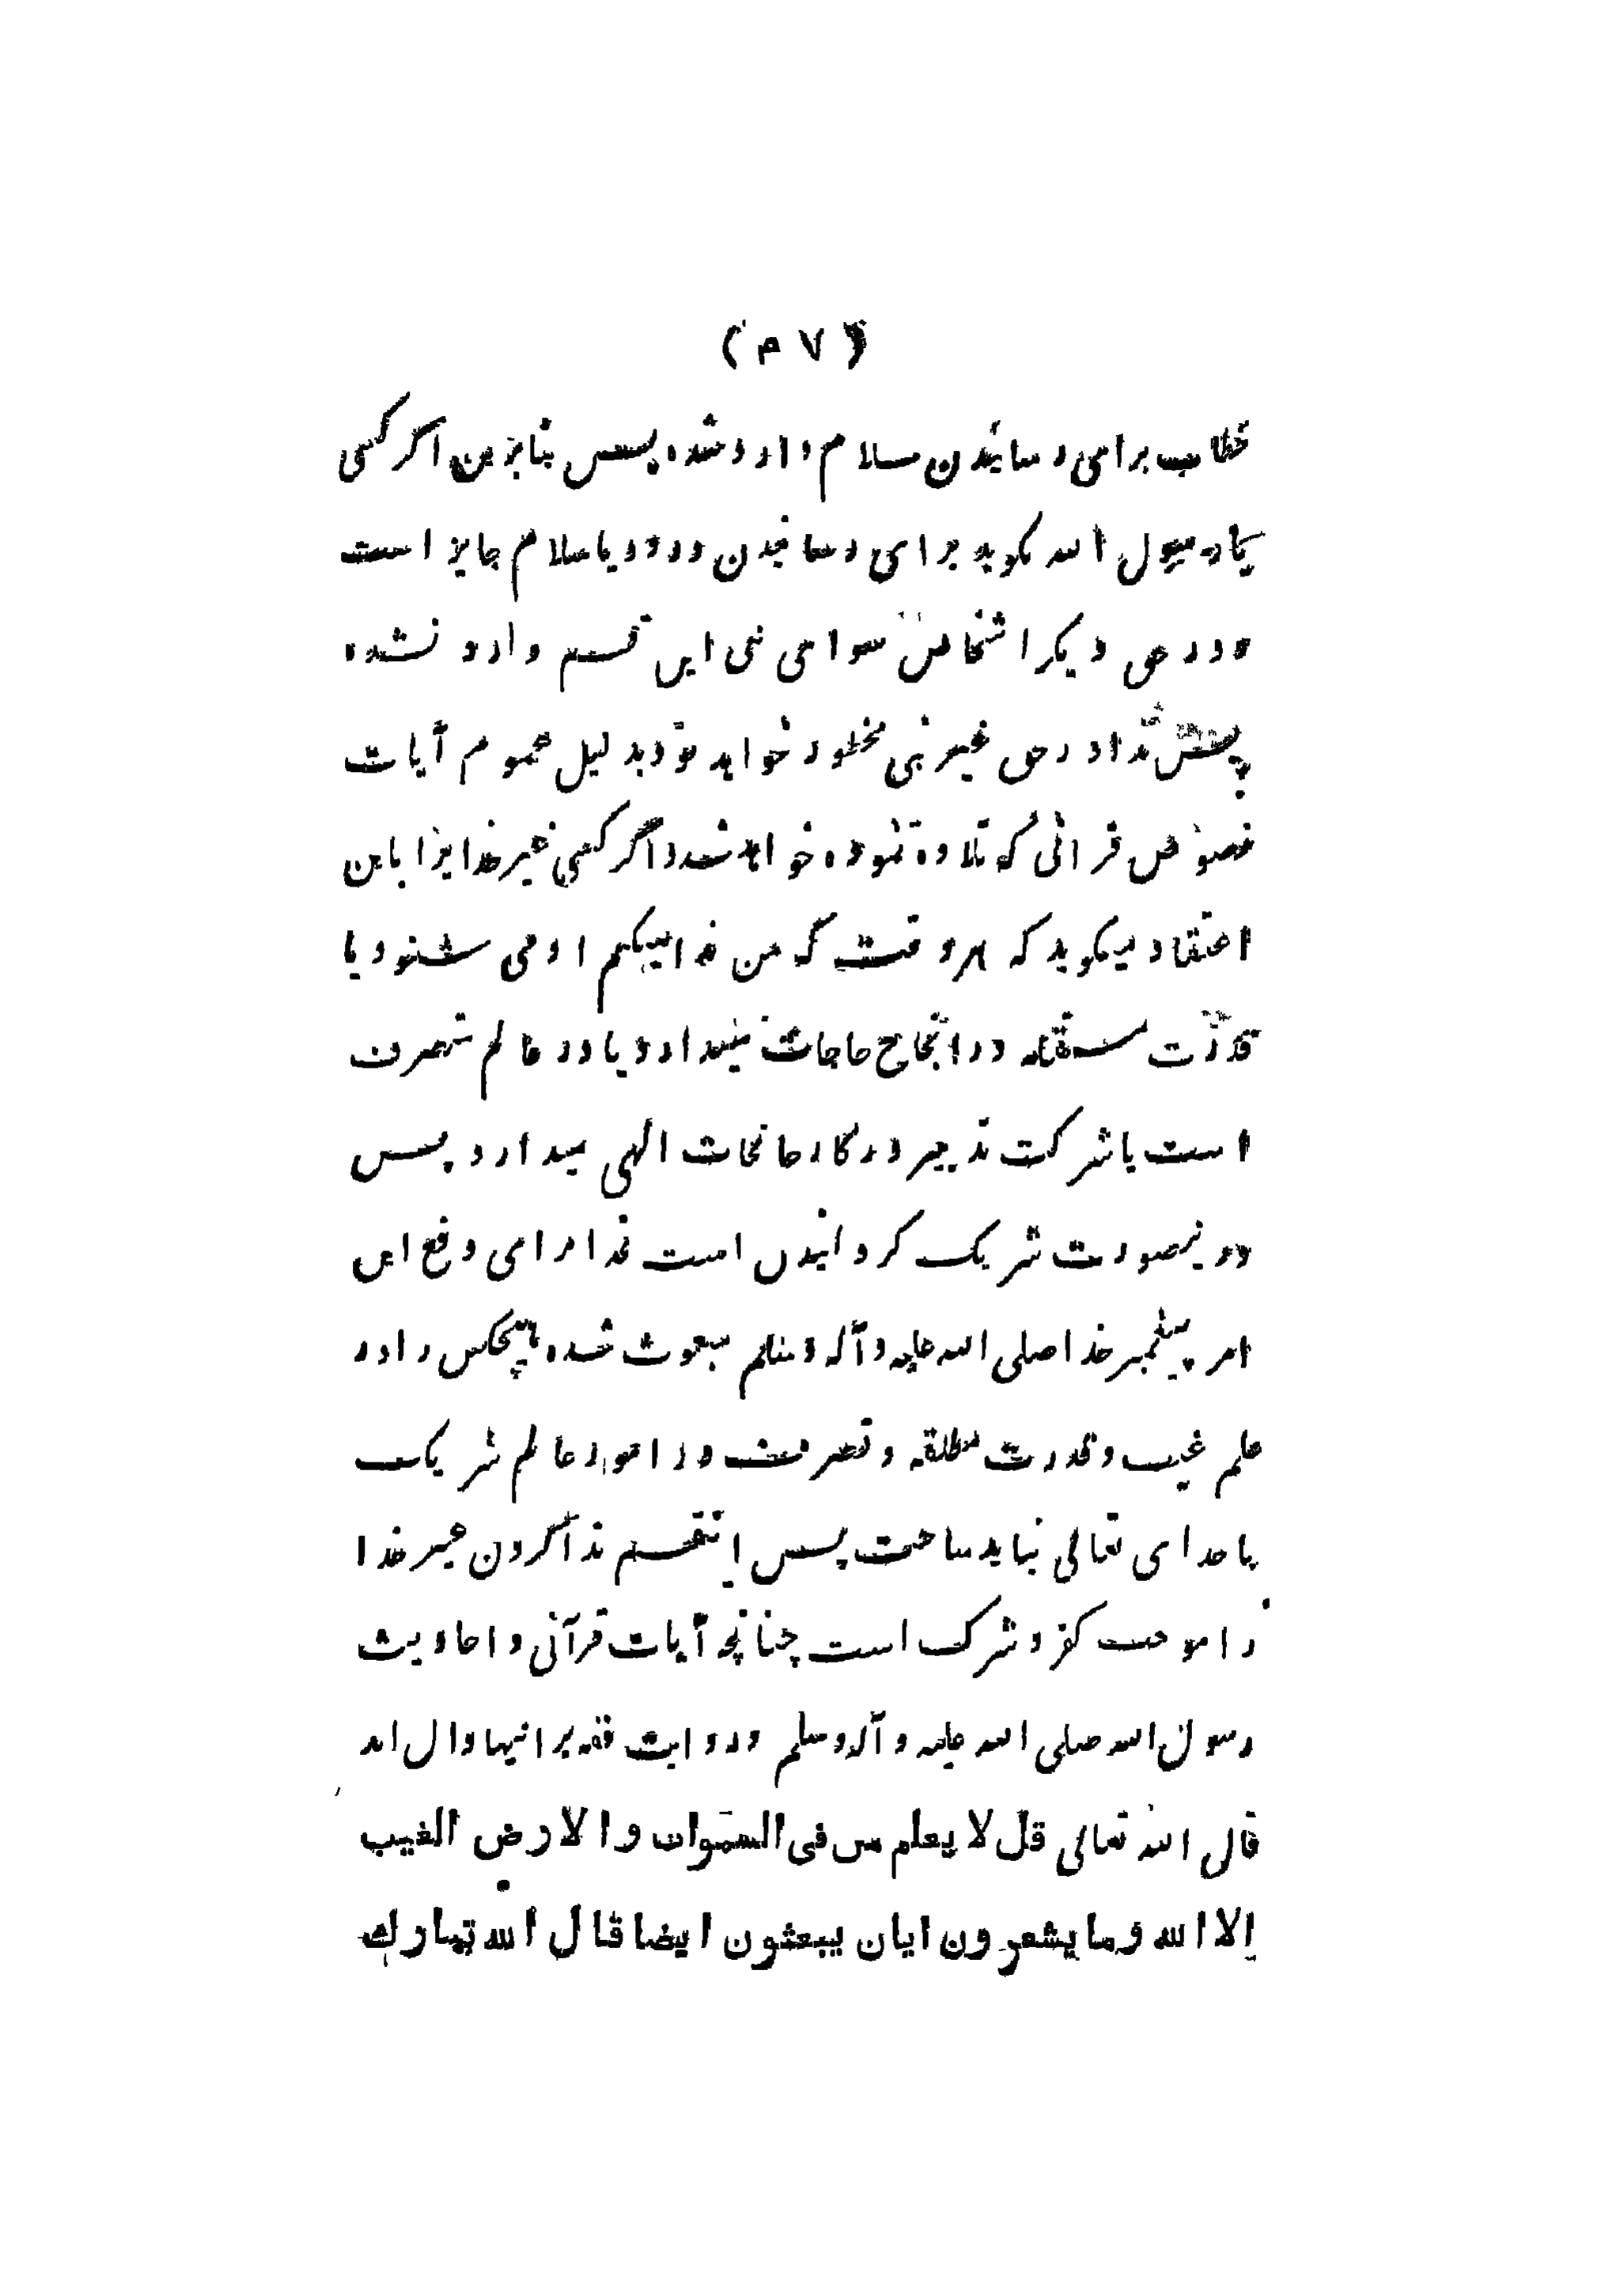 ( ٧ م )
خطاب برای رسانیدن سلام وارد شده پس بنابرین اگر کسی
یا رسول الله بگوید برای رسانیدن درود یا سلام جایز است
و در حق دیگر اشخاص سوای نبی این قسم وارد نشده
پس ندا در حق غیر نبی محظور خواهد بود بدلیل عموم آیات
نصوص قرآنی که تلاوة نموده خواهد شد و اگر کسی غیر خدا یرا باین
اعتقاد میگوید که هر وقت که من ندا میکنم او می شنود یا
قدرت مستقله در انجاح حاجات میدارد یا در عالم متصرف
است یا شرکت تدبیر در کارخانجات الهی میدارد پس
درینصورت شریک گردانیدن است بخدا برای دفع این
امر پیغمبر خدا صلی الله علیه و آله و سلم مبعوث شده هیچکس را در
علم غیب و قدرت مطلقه و تصرف در امور عالم شریک
با خدای تعالی نباید ساخت پس اینقسم ندا کردن غیر خدا
را موجب کفر و شرک است چنانچه آیات قرآنی و احادیث
رسول الله صلی الله علیه و آله و سلم و روایت فقه بر اینها دال اند
قال الله تعالی قل لا یعلم من فی السموات و الارض الغیب
الا الله و ما یشعرون ایان یبعثون ایضا قال الله تبارك